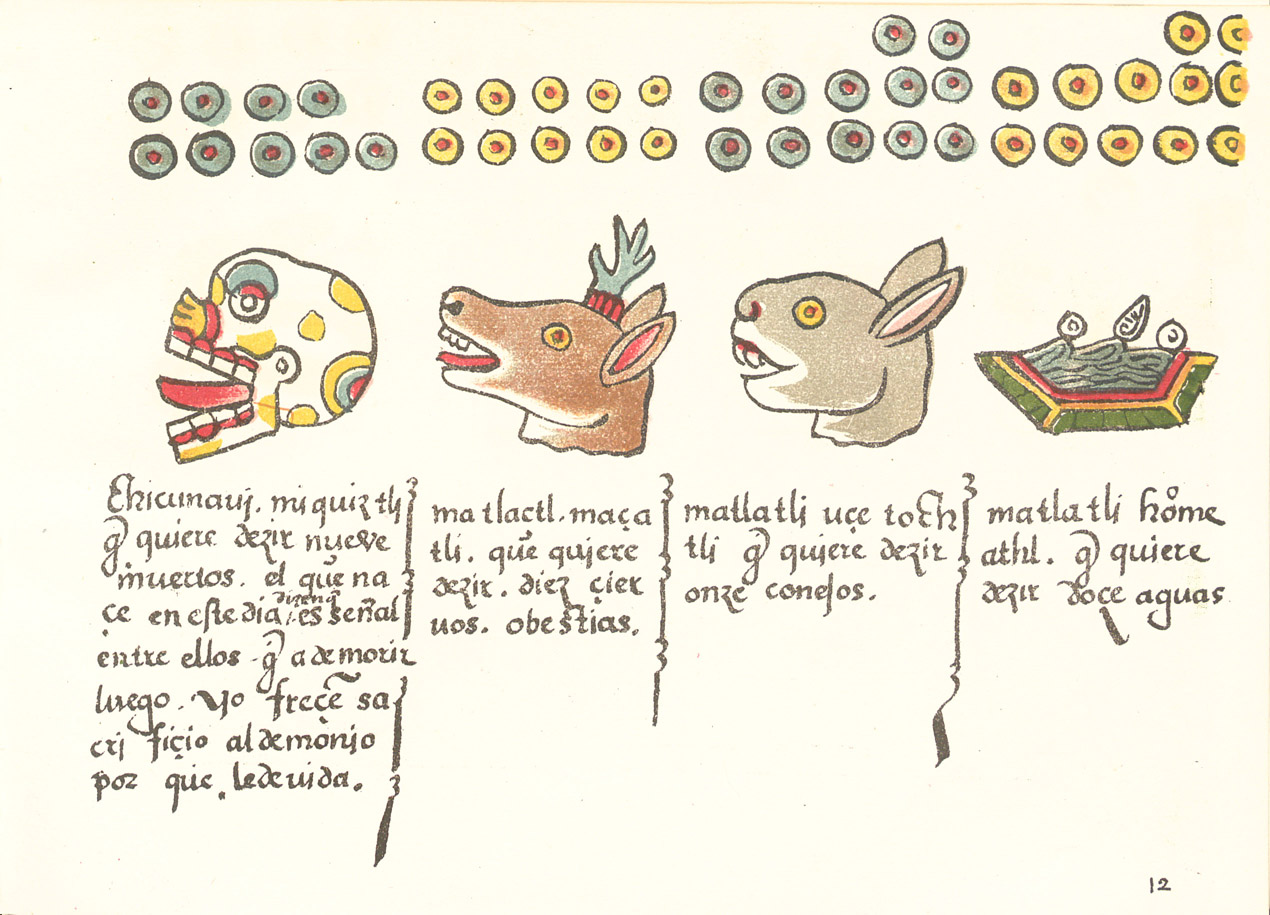 Chicunauj. miquiztli
q̃ quiere dezir nueve
muertos. el que na
ce en este dia dizen q̃ es señal
entre ellos q̃ a de morir
luego. Yo frecẽ sa
crj ficio al demonjo
por que le de uida.
matlactl. maça
tli. que qujere
dezir. diez cier
uos. o bestias.
matlatlj uçe toch
tli q̃ qujere dezir
onze conejos.
matlatli home
athl. q̃ quiere
dezir doçe aguas
12